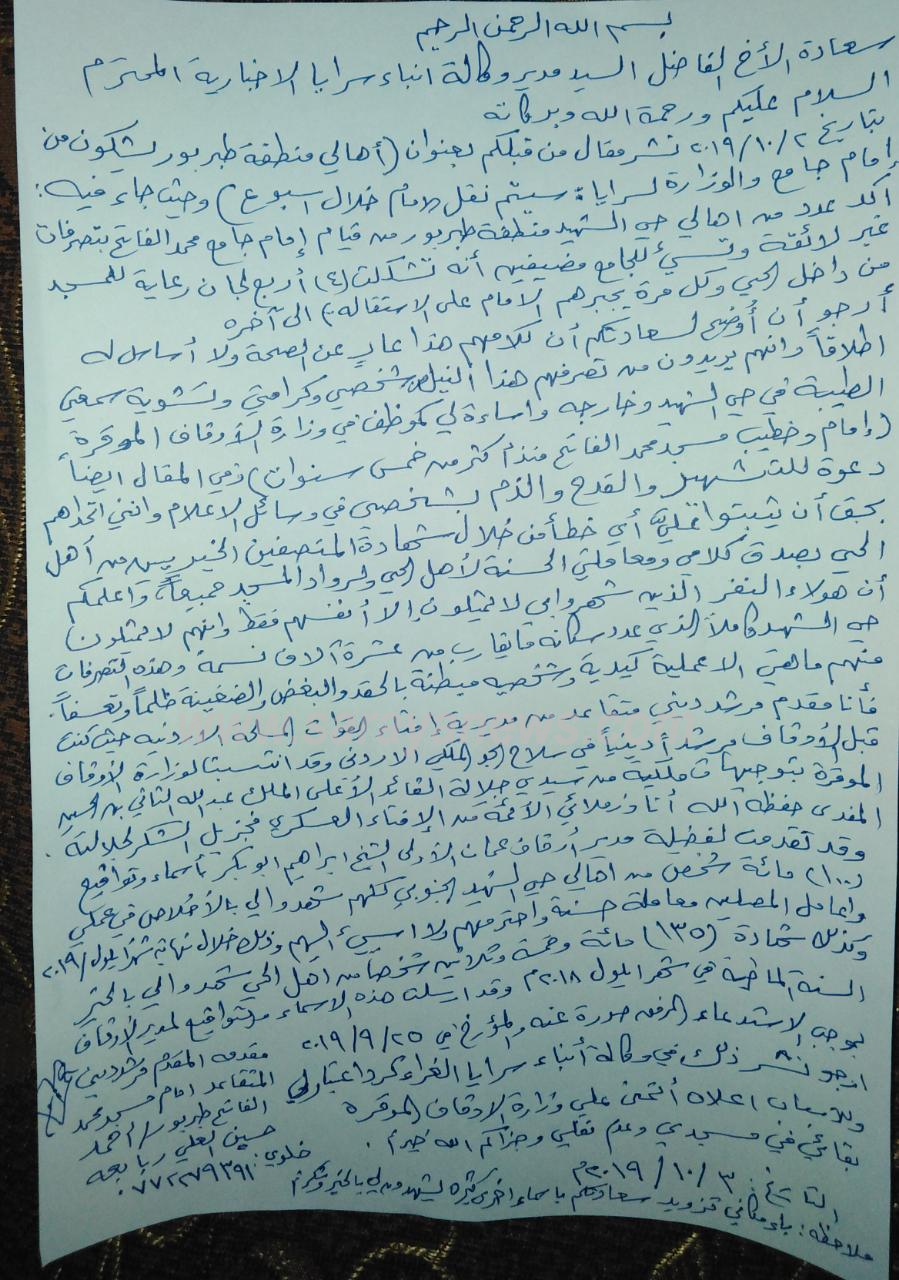 بسم الله الرحمن الرحيم
سعادة الأخ الفاضل السيد مدير وكالة انباء سرايا الاخبارية المحترم
السلام عليكم ورحمة الله وبركاته
بتاريخ ٢/١٠/٢٠١٩ نشر مقال من قبلكم بعنوان (أهالي منطقة طبربور يشكون من
إمام جامع والوزارة لسرايا: سيتم نقل الامام خلال اسبوع) وحيث جاء فيه:
اكد عدد من اهالي حي الشهيد منطقة طبربور من قيام إمام جامع محمد الفاتح بتصرفات
غير لائقة وتسيء للجامع مضيفين أنه تشكلت (٤) أربع لجان رعاية للمسجد
من داخل الحي وكل مرة يجبرهم الامام على الاستقالة) الى آخره
أرجو أن أوضح لسعادتكم أن كلامهم هذا عارٍ عن الصحة ولا أساس له
اطلاقاً وانهم يريدون من تصرفهم هذا النيل من شخصي وكرامتي وتشويه سمعتي
الطيبة في حي الشهيد وخارجه واساءة لي كموظف في وزارة الأوقاف الموقرة
(إمام وخطيب مسجد محمد الفاتح منذ أكثر من خمس سنوات) وفي المقال ايضاً
دعوة للتشهير والقدح والذم بشخصي في وسائل الاعلام وانني اتحداهم
بحق أن يثبتوا عليَّ أي خطأ من خلال شهادة المنصفين الخيريين من أهل
الحي بصدق كلامي ومعاملتي الحسنة لأهل الحي ولرواد المسجد جميعاً، واعلمكم
أن هولاء النفر الذين شهروا بي لا يمثلون إلا أنفسهم فقط وانهم لا يمثلون
حي الشهيد كاملاً الذي عدد سكانه ما يقارب من عشرة آلاف نسمة وهذه التصرفات
منهم ماهي الا عملية كيدية وشخصيه مبطنة بالحقد والبغض والضغينة ظلماً وتعسفاً.
فأنا مقدم مرشد ديني متقاعد من مديرية إفتاء القوات المسلحة الاردنيه حيث كنت
قبل الأوقاف مرشداً دينياً في سلاح الجو الملكي الاردني وقد انتسبت لوزارة الأوقاف
الموقرة بتوجيهات ملكية من سيدي جلالة القائد الأعلى الملك عبدالله الثاني بن الحسين
المفدى حفظه الله أنا وزملائي الأئمة من الإفتاء العسكري فجزيل الشكر لجلالته.
وقد تقدمت لفضيلة مدير أوقاف عمان الأولى الشيخ ابراهيم ابو بكر بأسماء وتواقيع
(١٠٠) مائة شخص من اهالي حي الشهيد الجنوبي كلهم شهدوا لي بالأخلاص في عملي
واعامل المصلين معاملة حسنة واحترمهم ولا اسيء اليهم وذلك خلال نهاية شهر ايلول/٢٠١٩
وكذلك شهادة (١٣٥) مائة وخمسة وثلاثين شخصاً من اهل الحي شهدوا لي بالخير
السنة الماضية في شهر ايلول ٢٠١٨م وقد ارسلت هذه الاسماء والتواقيع لمدير الأوقاف
بموجب الاستدعاء المرفق صورة عنه والمؤرخ في ٢٥/٩/٢٠١٩
ارجو نشر ذلك في وكالة أنباء سرايا الغراء كرد اعتبار لي
وللاسباب اعلاه أتمنى على وزارة الاوقاف الموقره
بقائي في مسجدي وعدم نقلي وجزاكم الله خيراً.
التاريخ: ٣/١٠/٢٠١٩م
مقدمه المقدم مرشد ديني
المتقاعد امام مسجد محمد
الفاتح طبربور/ أحمد
حسين العلي ربابعه
خلوي: ٠٧٧٢٢٧٩٣٩١
ملاحظه: بامكاني تزويد سعادتكم باسماء اخرى كثيره يشهدون لي بالخير وشكراً